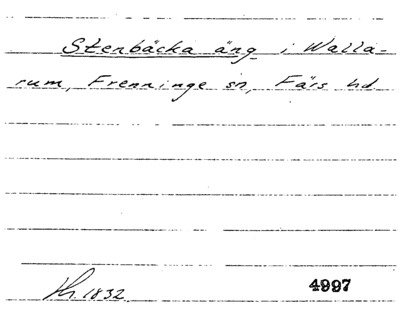 Stenbäcka äng i Walla-
rum, Frenninge sn, Färs hd
1832
4997